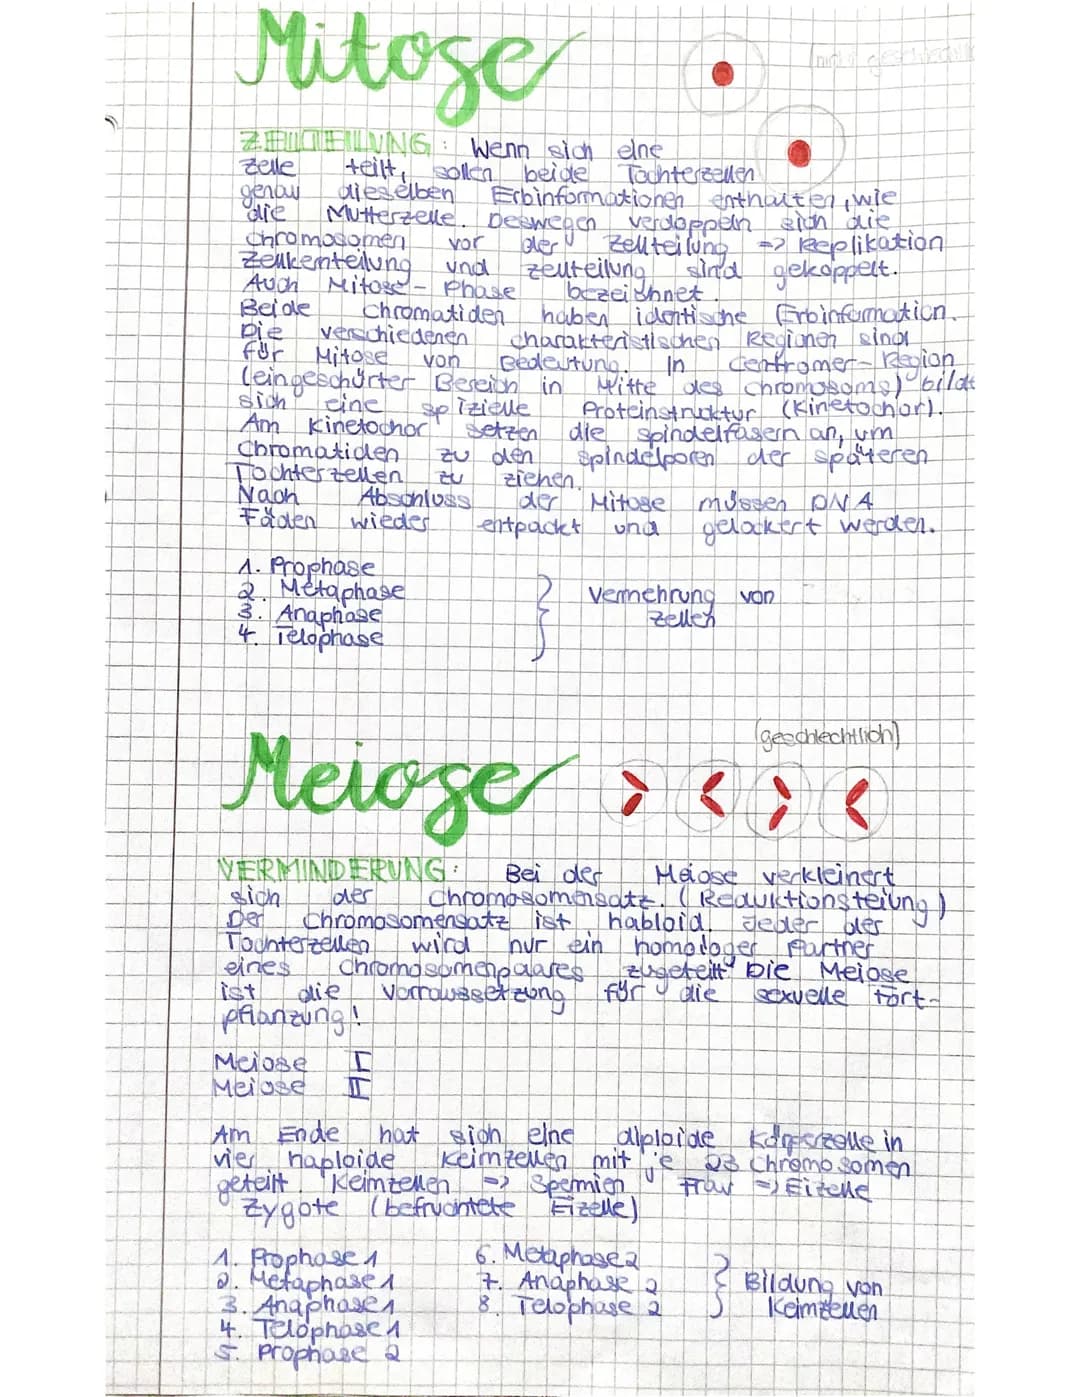 Mitose
(nicht geschlechtlich
ZELLTEILUNG: Wenn sich eine
Zelle teilt, sollen beide Tochterzellen
genau dieselben Erbinformationen enthalten, wie
die Mutterzelle. Deswegen verdoppeln sich die
Chromosomen vor der Zellteilung => Replikation
Zellkernteilung und Zellteilung sind gekoppelt.
Auch Mitose-Phase bezeichnet.
Beide Chromatiden haben identische Erbinformation.
Die verschiedenen charakteristischen Regionen sind
für Mitose von Bedeutung. In Centromer-Region
(eingeschürter Bereich in Mitte des Chromosoms) bildet
sich eine spizielle Proteinstruktur (Kinetochor).
Am Kinetochor setzen die Spindelfasern an, um
Chromatiden zu den Spindelporen der späteren
Tochterzellen zu ziehen.
Nach Abschluss der Mitose müssen DNA
Fäden wieder entpackt und gelockert werden.
1. Prophase
2. Metaphase
3. Anaphase
4. Telophase
Vermehrung von
Zellen
(geschlechtlich)
Meiose
VERMINDERUNG: Bei der Meiose verkleinert
sich der Chromosomensatz. (Reduktionsteilung)
Der Chromosomensatz ist habloid. Jeder der
Tochterzellen wird nur ein homologer Partner
eines Chromosomenpaares zugeteilt. Die Meiose
ist die Vorraussetzung für die sexuelle Fort-
pflanzung!
Meiose I
Meiose II
Am Ende hat sich eine diploide Körperzelle in
vier haploide Keimzellen mit je 23 Chromosomen
geteilt. Keimzellen => Spermien Frau => Eizelle
Zygote (befruchtete Eizelle)
1. Prophase 1
2. Metaphase 1
3. Anaphase 1
4. Telophase 1
5. Prophase 2
6. Metaphase 2
7. Anaphase 2
8. Telophase 2
Bildung von
Keimzellen